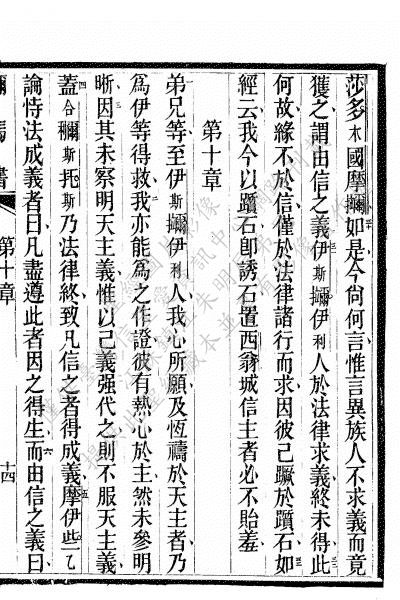 莎多木國摩擟如是今尙何言惟言異族人不求義而竟
獲之謂由信之義伊斯擟伊利人於法律求義終未得此
何故緣不於信僅於法律諸行而求因彼己蹶於躓石如
經云我今以躓石卽誘石置西翁城信主者必不貽羞
第十章
弟兄等至伊斯擟伊利人我心所願及恆禱於天主者乃
為伊等得救我亦能為之作證彼有熱心於主然未參明
晰因其未察明天主義惟以己義强代之則不服天主義
蓋合擟斯托斯乃法律終致凡信之者得成義摩伊些乙
論恃法成義者曰凡盡遵此者因之得生而由信之義曰
書
第十章
十四